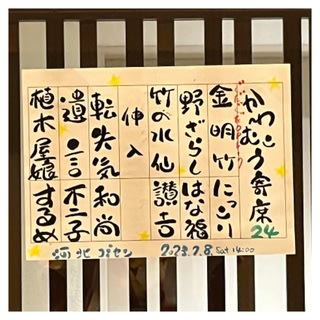 かわむこう寄席 24
金明竹 にっこり
野ざらし はな福
竹の水仙 讃吉
仲入
転失気 和尚
遺言 不二子
植木屋娘 するめ
河北コミセン 2023.7.8. Sat 14:00